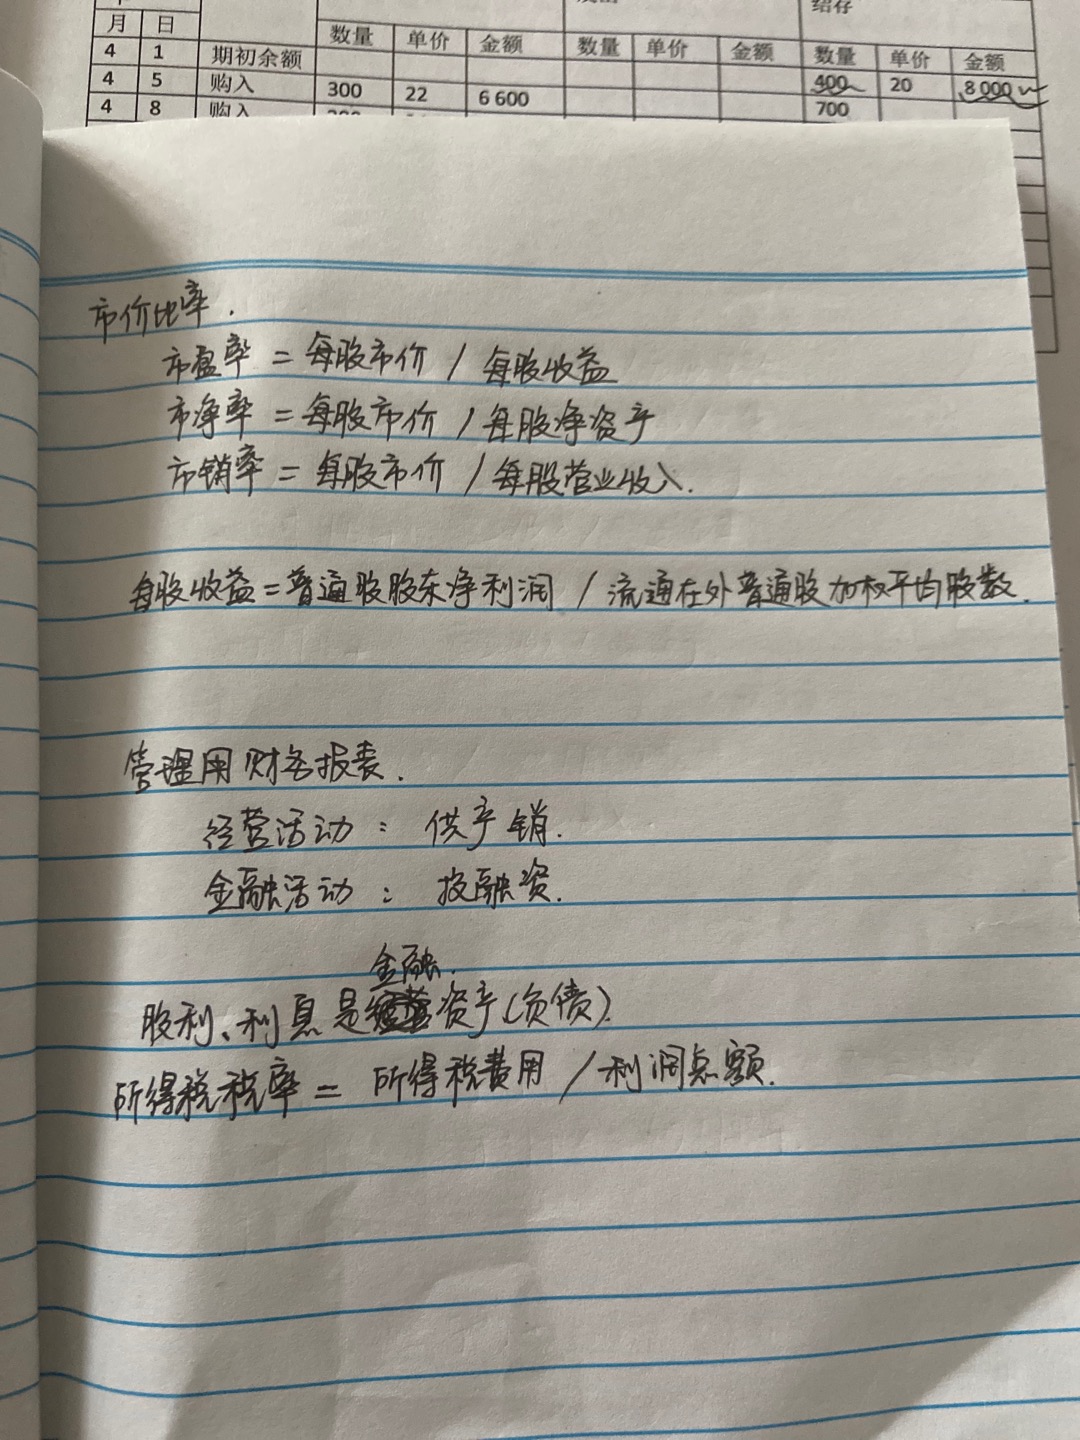 结存
月 日 数量 单价 金额 数量 单价 金额 数量 单价 金额
4 1 期初余额 400 20 8 000
4 5 购入 300 22 6 600 700
4 8 购入
市价比率.
市盈率 = 每股市价 / 每股收益
市净率 = 每股市价 / 每股净资产
市销率 = 每股市价 / 每股营业收入.
每股收益 = 普通股股东净利润 / 流通在外普通股加权平均股数.
管理用财务报表.
经营活动: 供产销.
金融活动: 投融资.
金融.
股利、利息是经营资产(负债).
所得税税率 = 所得税费用 / 利润总额.